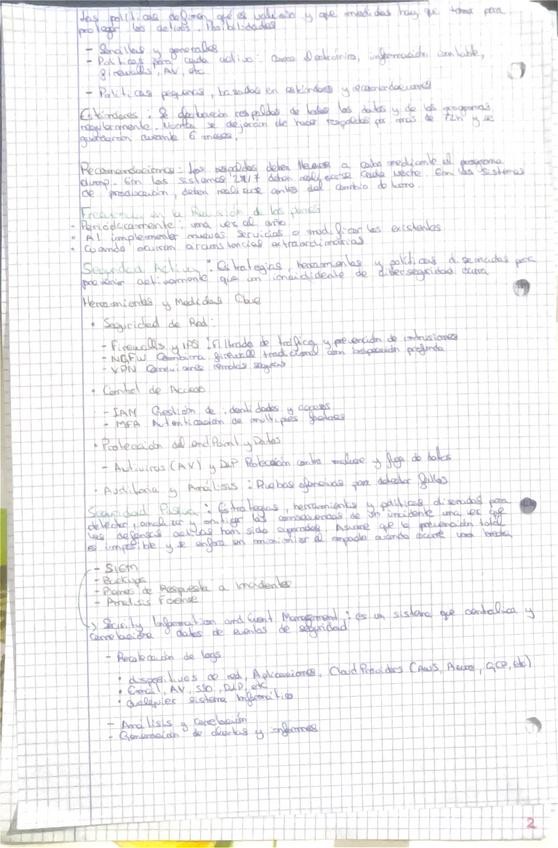 Las políticas definen qué es valioso y qué medidas hay que tomar para
proteger los activos. Posibilidades
- Sencillas y generales
- Políticas para cada activo: Correo electrónico, información contable,
firewalls, AV, etc.
- Políticas pequeñas, basadas en estándares y recomendaciones
Estándares: Se efectuarán respaldos de todos los datos y de los programas
regularmente. Nunca se dejarán de hacer respaldos por más de 72h y se
guardarán durante 6 meses.
Recomendaciones: Los respaldos deben llevarse a cabo mediante el programa
dump. En los sistemas 24/7 deben realizarse cada noche. En los sistemas
de producción, deben realizarse antes del cambio de turno.
Frecuencia en la Revisión de las
- Periódicamente: una vez al año
- Al implementar nuevos servicios o modificar los existentes
- Cuando ocurran circunstancias extraordinarias
Seguridad Activa: Estrategias, herramientas y políticas diseñadas para
prevenir activamente que un incidente de ciberseguridad ocurra
Herramientas y Medidas Clave
• Seguridad de Red:
- Firewalls y IPS: Filtrado de tráfico y prevención de intrusiones
- NGFW Combina firewall tradicional con inspección profunda
- VPN Conexiones remotas seguras
• Control de Acceso
- IAM Gestión de identidades y accesos
- MFA Autenticación de múltiples factores
• Protección del endPoint y Datos
- Antivirus (AV) y DLP Protección contra malware y fuga de datos
• Auditoría y Análisis: Pruebas ofensivas para detectar fallos
Seguridad Pasiva: Estrategias, herramientas y políticas diseñadas para
detectar, analizar y mitigar las consecuencias de un incidente una vez que
las defensas activas han sido superadas. Asume que la prevención total
es imposible y se enfoca en minimizar el impacto cuando ocurre una brecha
- SIEM
- Backups
- Planes de Respuesta a Incidentes
- Análisis Forense
↳ Security Information and Event Management: es un sistema que centraliza y
correlaciona datos de eventos de seguridad
- Recolección de logs
• dispositivos de red, Aplicaciones, Cloud Providers (AWS, Azure, GCP, etc)
• Email, AV, SSO, DLP, etc
• cualquier sistema informático
- Análisis y correlación
- Generación de alertas y informes
2